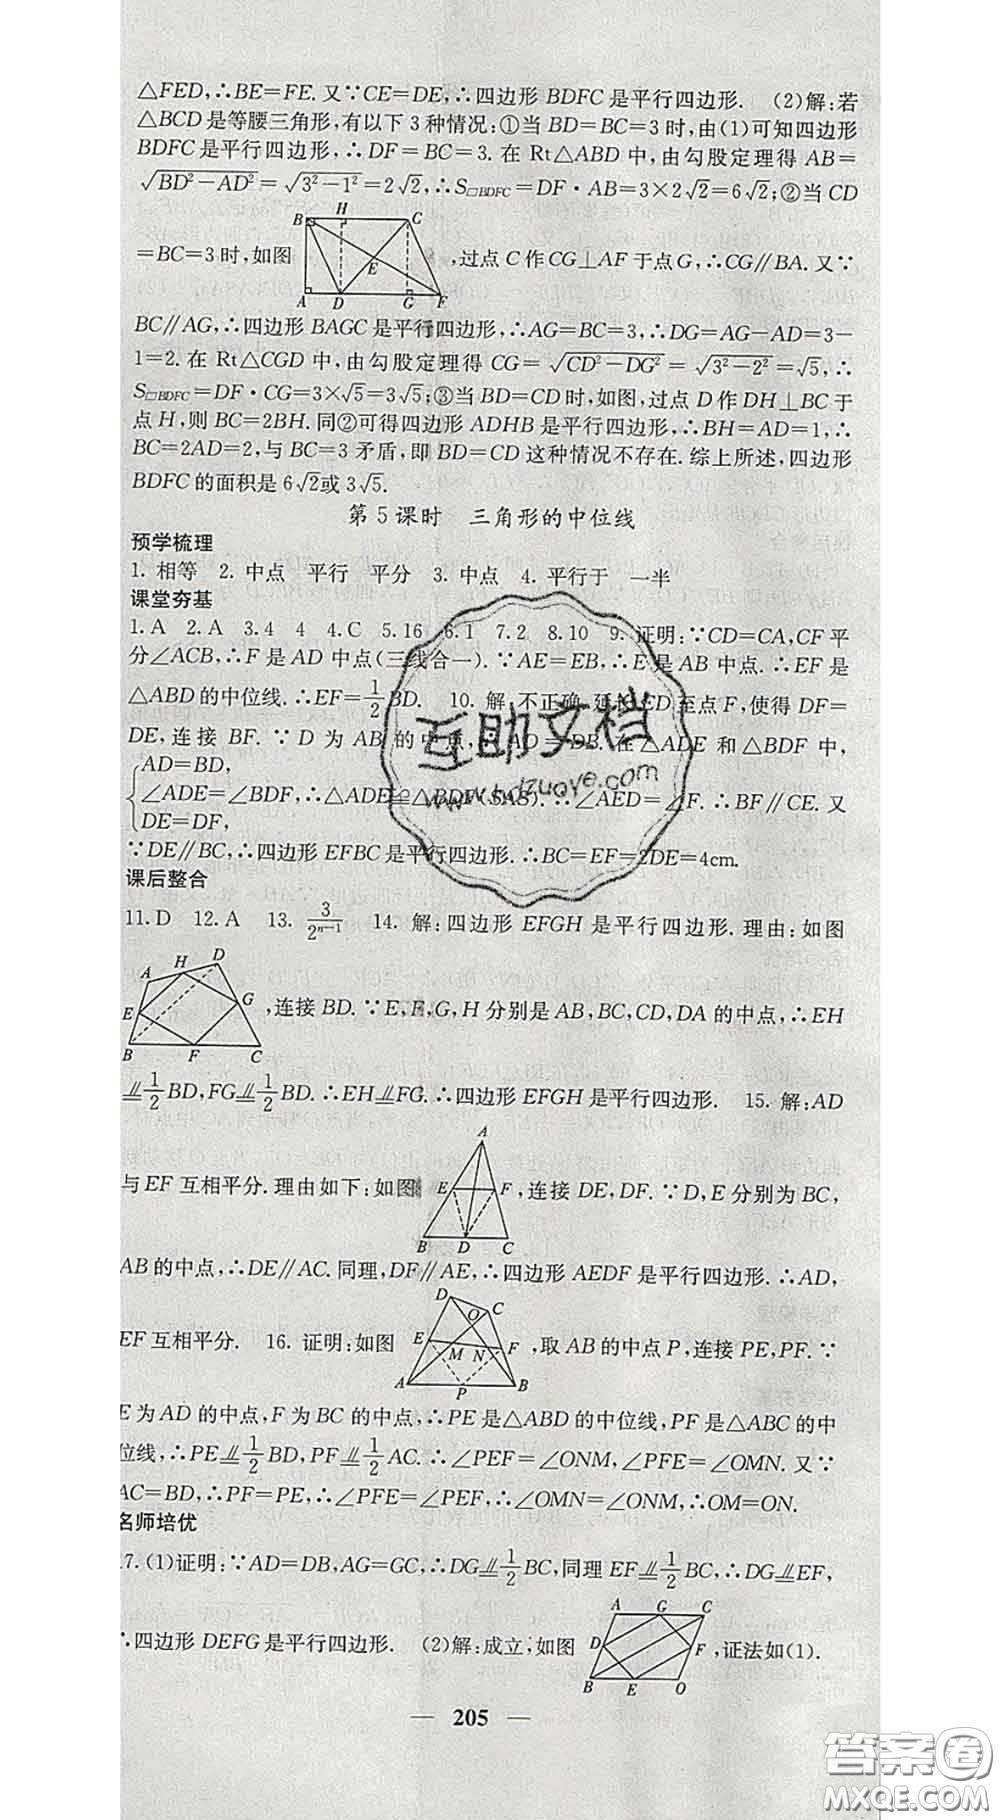 △FED,∴BE=FE.又∵CE=DE,∴四边形 BDFC是平行四边形. (2)解:若
△BCD是等腰三角形,有以下3种情况:①当BD=BC=3时,由(1)可知四边形
BDFC是平行四边形,∴DF=BC=3.在Rt△ABD中,由勾股定理得AB=
√(BD²-AD²)=√(3²-1²)=2√2,∴S▱BDFC=DF·AB=3×2√2=6√2;②当CD
B H C E A D G F
=BC=3时,如图 ,过点C作CG⊥AF于点G,∴CG∥BA.又∵
BC∥AG,∴四边形BAGC是平行四边形,∴AG=BC=3,∴DG=AG-AD=3-
1=2.在Rt△CGD中,由勾股定理得CG=√(CD²-DG²)=√(3²-2²)=√5,∴
S▱BDFC=DF·CG=3×√5=3√5;③当BD=CD时,如图,过点D作DH⊥BC于
点H,则BC=2BH.同②可得四边形ADHB是平行四边形,∴BH=AD=1,∴
BC=2AD=2,与BC=3矛盾,即BD=CD这种情况不存在.综上所述,四边形
BDFC的面积是6√2或3√5.
第5课时 三角形的中位线
预学梳理
1.相等 2.中点 平行 平分 3.中点 4.平行于 一半
课堂夯基
1.A 2.A 3.4 4 4.C 5.16 6.1 7.2 8.10 9.证明:∵CD=CA,CF平
分∠ACB,∴F是AD中点(三线合一).∵AE=EB,∴E是AB中点.∴EF是
△ABD的中位线.∴EF=1/2BD. 10.解:不正确.延长ED至点F,使得DF=
DE,连接BF.∵D为AB的中点,∴AD=DB.在△ADE和△BDF中,
AD=BD,
∠ADE=∠BDF,∴△ADE≌△BDF(SAS).∴∠AED=∠F.∴BF∥CE.又
DE=DF,
∵DE∥BC,∴四边形EFBC是平行四边形.∴BC=EF=2DE=4cm.
互助文档
www.hdzuoye.com
课后整合
11.D 12.A 13. 3/2ⁿ⁻¹ 14.解:四边形EFGH是平行四边形.理由:如图
A H D E G B F C
,连接BD.∵E,F,G,H分别是AB,BC,CD,DA的中点,∴EH
⫽1/2BD,FG⫽1/2BD.∴EH⫽FG.∴四边形EFGH是平行四边形. 15.解:AD
A E F B D C
与EF互相平分.理由如下:如图 ,连接DE,DF.∵D,E分别为BC,
AB的中点,∴DE∥AC.同理,DF∥AE,∴四边形AEDF是平行四边形.∴AD,
D O C E M N F A P B
EF互相平分. 16.证明:如图 ,取AB的中点P,连接PE,PF.∵
E为AD的中点,F为BC的中点,∴PE是△ABD的中位线,PF是△ABC的中
位线,∴PE⫽1/2BD,PF⫽1/2AC.∴∠PEF=∠ONM,∠PFE=∠OMN.又∵
AC=BD,∴PF=PE,∴∠PFE=∠PEF,∴∠OMN=∠ONM,∴OM=ON.
名师培优
17.(1)证明:∵AD=DB,AG=GC,∴DG⫽1/2BC,同理EF⫽1/2BC,∴DG⫽EF,
A G C D F B E O
∴四边形DEFG是平行四边形. (2)解:成立,如图 ,证法如(1).
— 205 —
答案圈
MXQE.COM